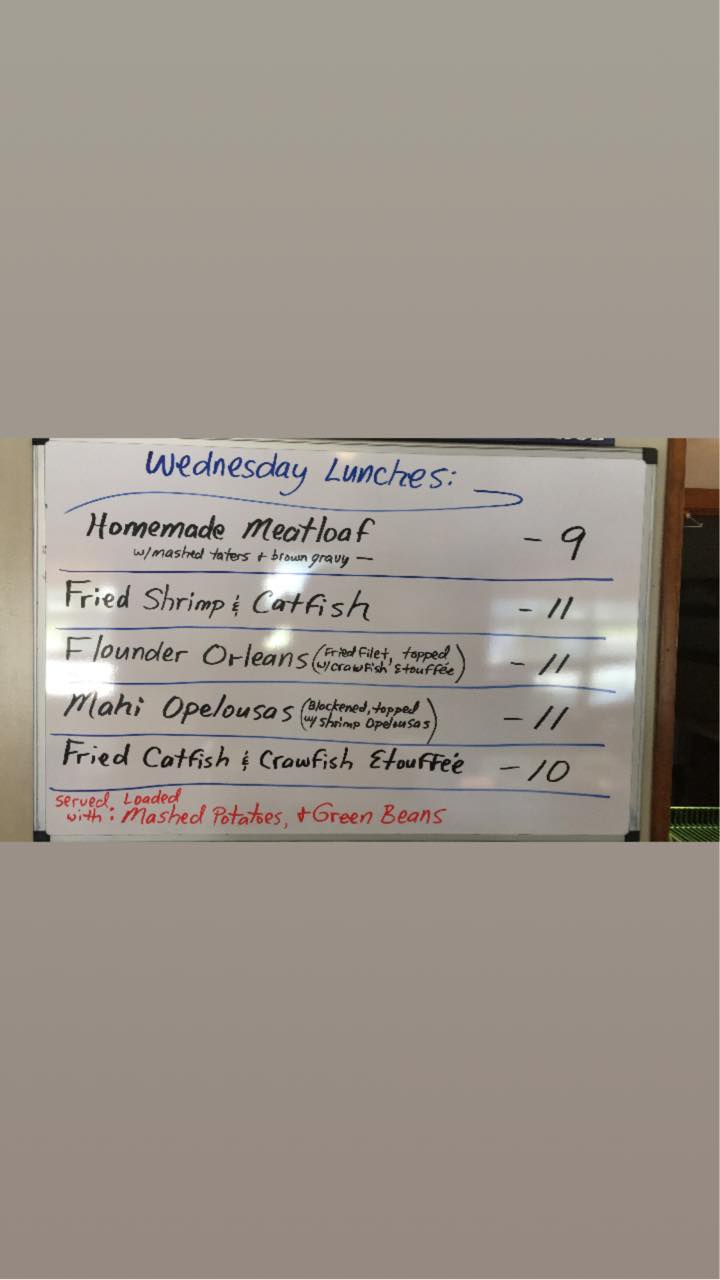 Wednesday Lunches:
Homemade Meatloaf - 9
w/mashed taters + brown gravy —
Fried Shrimp & Catfish - 11
Flounder Orleans (Fried Filet, topped w/crawfish Etouffée) - 11
Mahi Opelousas (Blackened, topped w/ Shrimp Opelousas) - 11
Fried Catfish & Crawfish Etouffée - 10
served with: Loaded Mashed Potatoes, + Green Beans